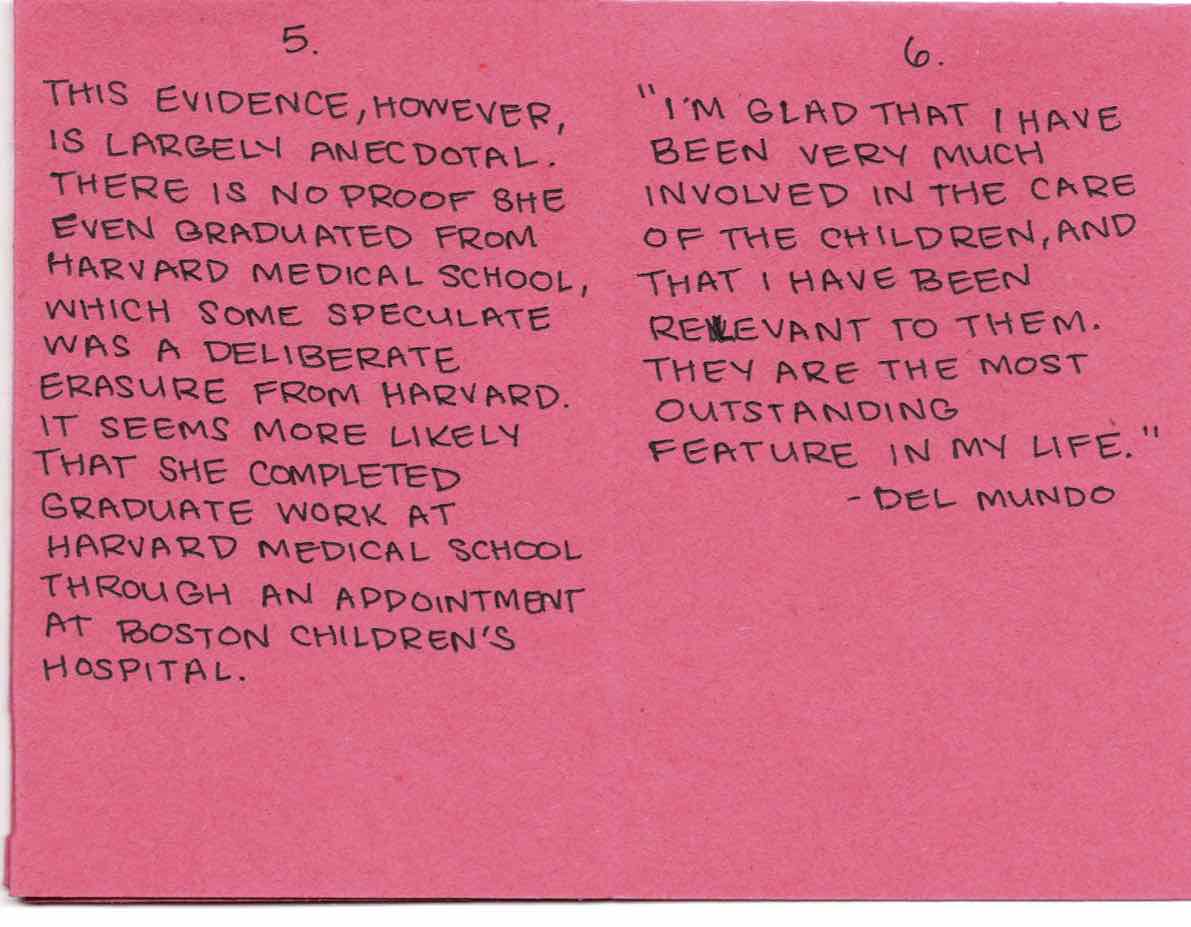 5.
THIS EVIDENCE, HOWEVER,
IS LARGELY ANECDOTAL.
THERE IS NO PROOF SHE
EVEN GRADUATED FROM
HARVARD MEDICAL SCHOOL,
WHICH SOME SPECULATE
WAS A DELIBERATE
ERASURE FROM HARVARD.
IT SEEMS MORE LIKELY
THAT SHE COMPLETED
GRADUATE WORK AT
HARVARD MEDICAL SCHOOL
THROUGH AN APPOINTMENT
AT BOSTON CHILDREN'S
HOSPITAL.
6.
"I'M GLAD THAT I HAVE
BEEN VERY MUCH
INVOLVED IN THE CARE
OF THE CHILDREN, AND
THAT I HAVE BEEN
RELEVANT TO THEM.
THEY ARE THE MOST
OUTSTANDING
FEATURE IN MY LIFE."
- DEL MUNDO